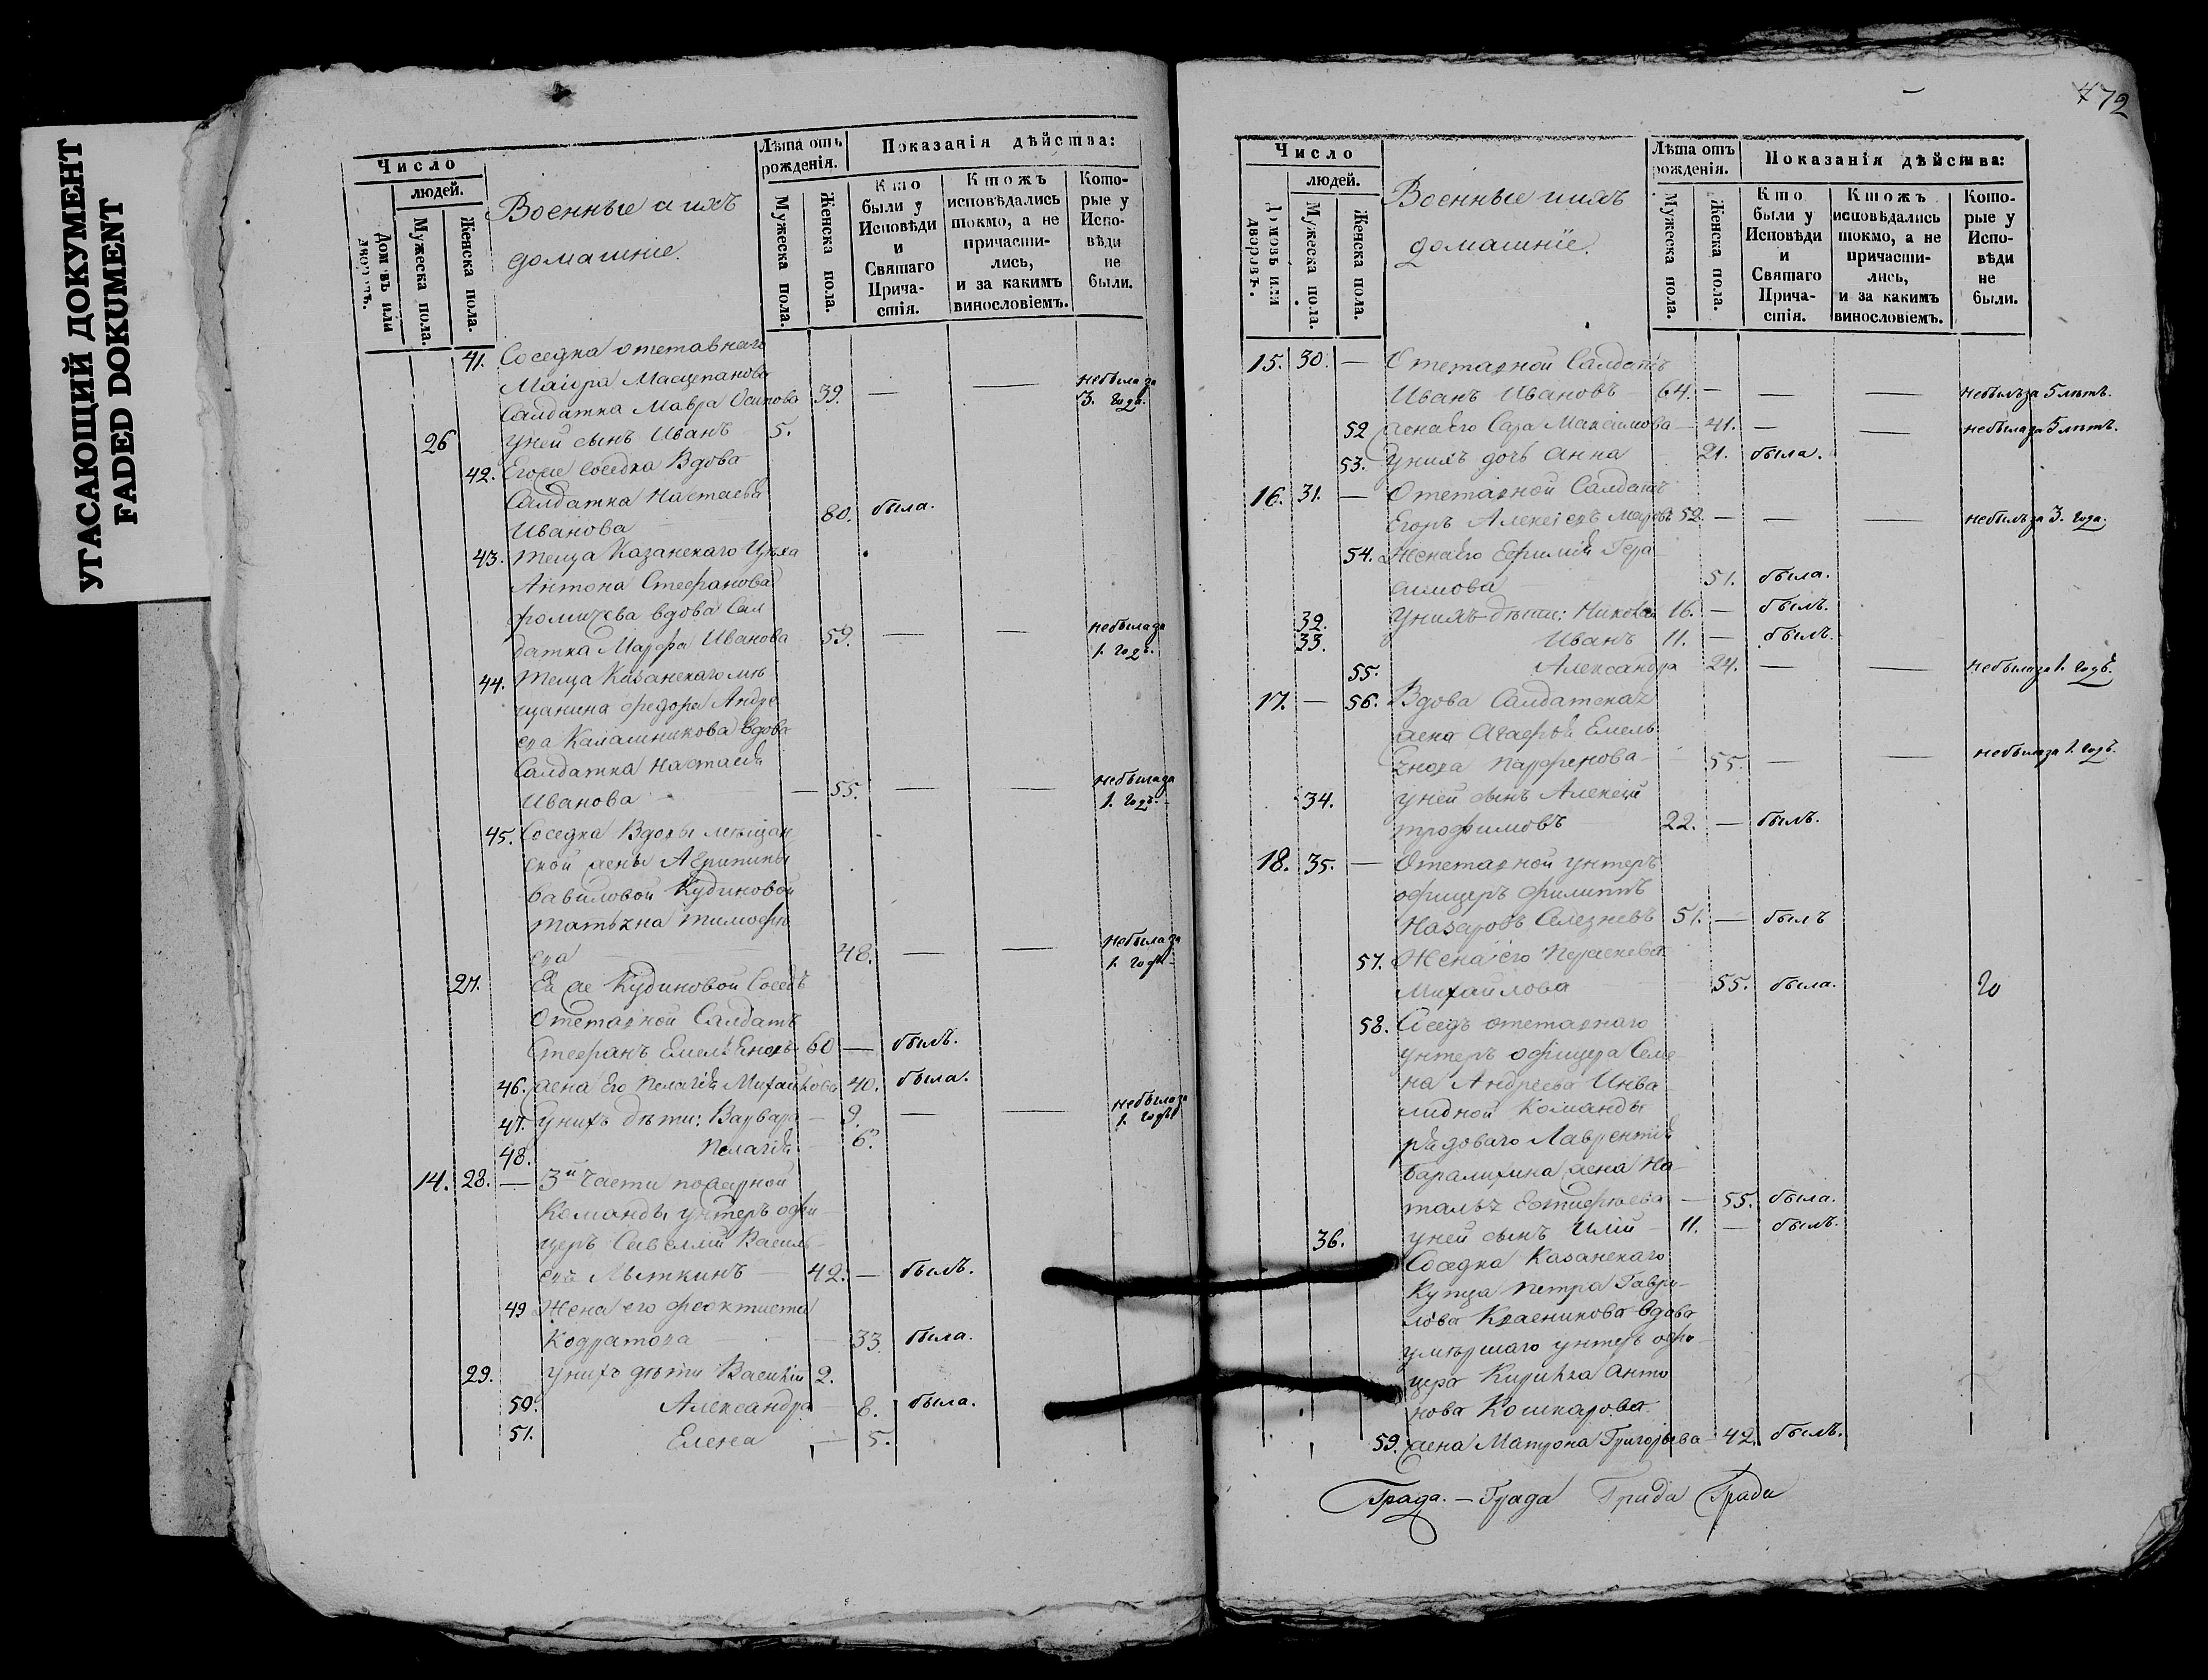 УГАСАЮЩИЙ ДОКУМЕНТ
FADED DOKUMENT
Число
людей.
Домовъ или дворовъ.
Мужеска пола.
Женска пола.
Военные и ихъ
домашніе.
Лѣта отъ рожденія.
Мужеска пола.
Женска пола.
Показанія дѣйства:
Кто были у Исповѣди и Святаго Причастія.
Ктожъ исповѣдались токмо, а не причастились, и за какимъ винословіемъ.
Которые у Исповѣди не были.
41. Соседка отставнаго
Маіора Масцепанова
Салдатка Мавра Осипова 39. — — небыла за 3. годъ.
26 Уней сынъ Иванъ 5.
42. Егоже соседка Вдова
Салдатка Настасья
Иванова 80. была.
43. Теща Казанскаго Цѣха
Антона Стефанова
Фомичева вдова Сал
датка Марфа Иванова 59. — — небыла за 1. годъ.
44. Теща Казанскаго мѣ
щанина Федора Андре
ева Калашникова вдова
Салдатка Настасья
Иванова — 55. — — небыла за 1. годъ.
45. Соседка Вдовы мѣщан
ской жены Агрипины
Вавиловой Кудиновой
Татьяна Тимофѣ
ева 48. — — небыла за 1. годъ
27. Ея же Кудиновой Соседъ
Отставной Салдатъ
Стефанъ Емельяновъ 60 — былъ.
46. жена Его Пелагія Михайлова 40. была.
47. Унихъ дѣти: Варвара — 9. — — небыла за 1. годъ
48. Пелагія 6.
14. 28. — 3й Части пожарной
Команды унтеръ офи
церъ Савелій Василь
евъ Мыткинъ — 42. — былъ.
49 Жена его Феоктиста
Кодратова — 33. была.
29. Унихъ дѣти Василій 2.
50. Александра — 8. была.
51. Елена — 5.
72
Число
людей.
Домовъ или дворовъ.
Мужеска пола.
Женска пола.
Военные и ихъ
домашніе.
Лѣта отъ рожденія.
Мужеска пола.
Женска пола.
Показанія дѣйства:
Кто были у Исповѣди и Святаго Причастія.
Ктожъ исповѣдались токмо, а не причастились, и за какимъ винословіемъ.
Которые у Исповѣди не были.
15. 30. — Отставной Салдатъ
Иванъ Ивановъ 64. — — — небылъ за 5 лѣтъ.
52 жена Его Сара Максимова — 41. — — небыла за 5 лѣтъ.
53. Унихъ дочь Анна 21. была.
16. 31. — Отставной Салдатъ
Егоръ Алексѣевъ 52. — — — небылъ за 3. года.
54. Жена Его Ефимія Гера
симова 51. была.
32. Унихъ дѣти: Николай 16. — былъ.
33. Иванъ 11. — былъ.
55. Александра 24. — — небыла за 1. годъ.
17. — 56. Вдова Салдатская
жена Агафья Емель
янова Парфенова — 55. — — небыла за 1. годъ.
34. Уней сынъ Алексей
Трофимовъ 22. — былъ.
18. 35. — Отставной унтеръ
офицеръ Филиппъ
Назаровъ Селезневъ 51. — былъ
57. Жена его Прасковья
Михайлова 55. была. го
58. Соседъ отставнаго
унтеръ офицера Семе
на Андреева Инва
лидной Команды
рядоваго Лаврентія
жена На
талья Евтифѣева — 55. была.
36. Уней сынъ Илія — 11. — былъ.
Соседка Казанскаго
Купца Петра Гаври
лова Квасникова вдова
умѣршаго унтеръ офи
цера Кирилла Анто
нова Кошкарова
59. жена Матрона Григорьева — 42. былъ.
Града. — Града Града Града